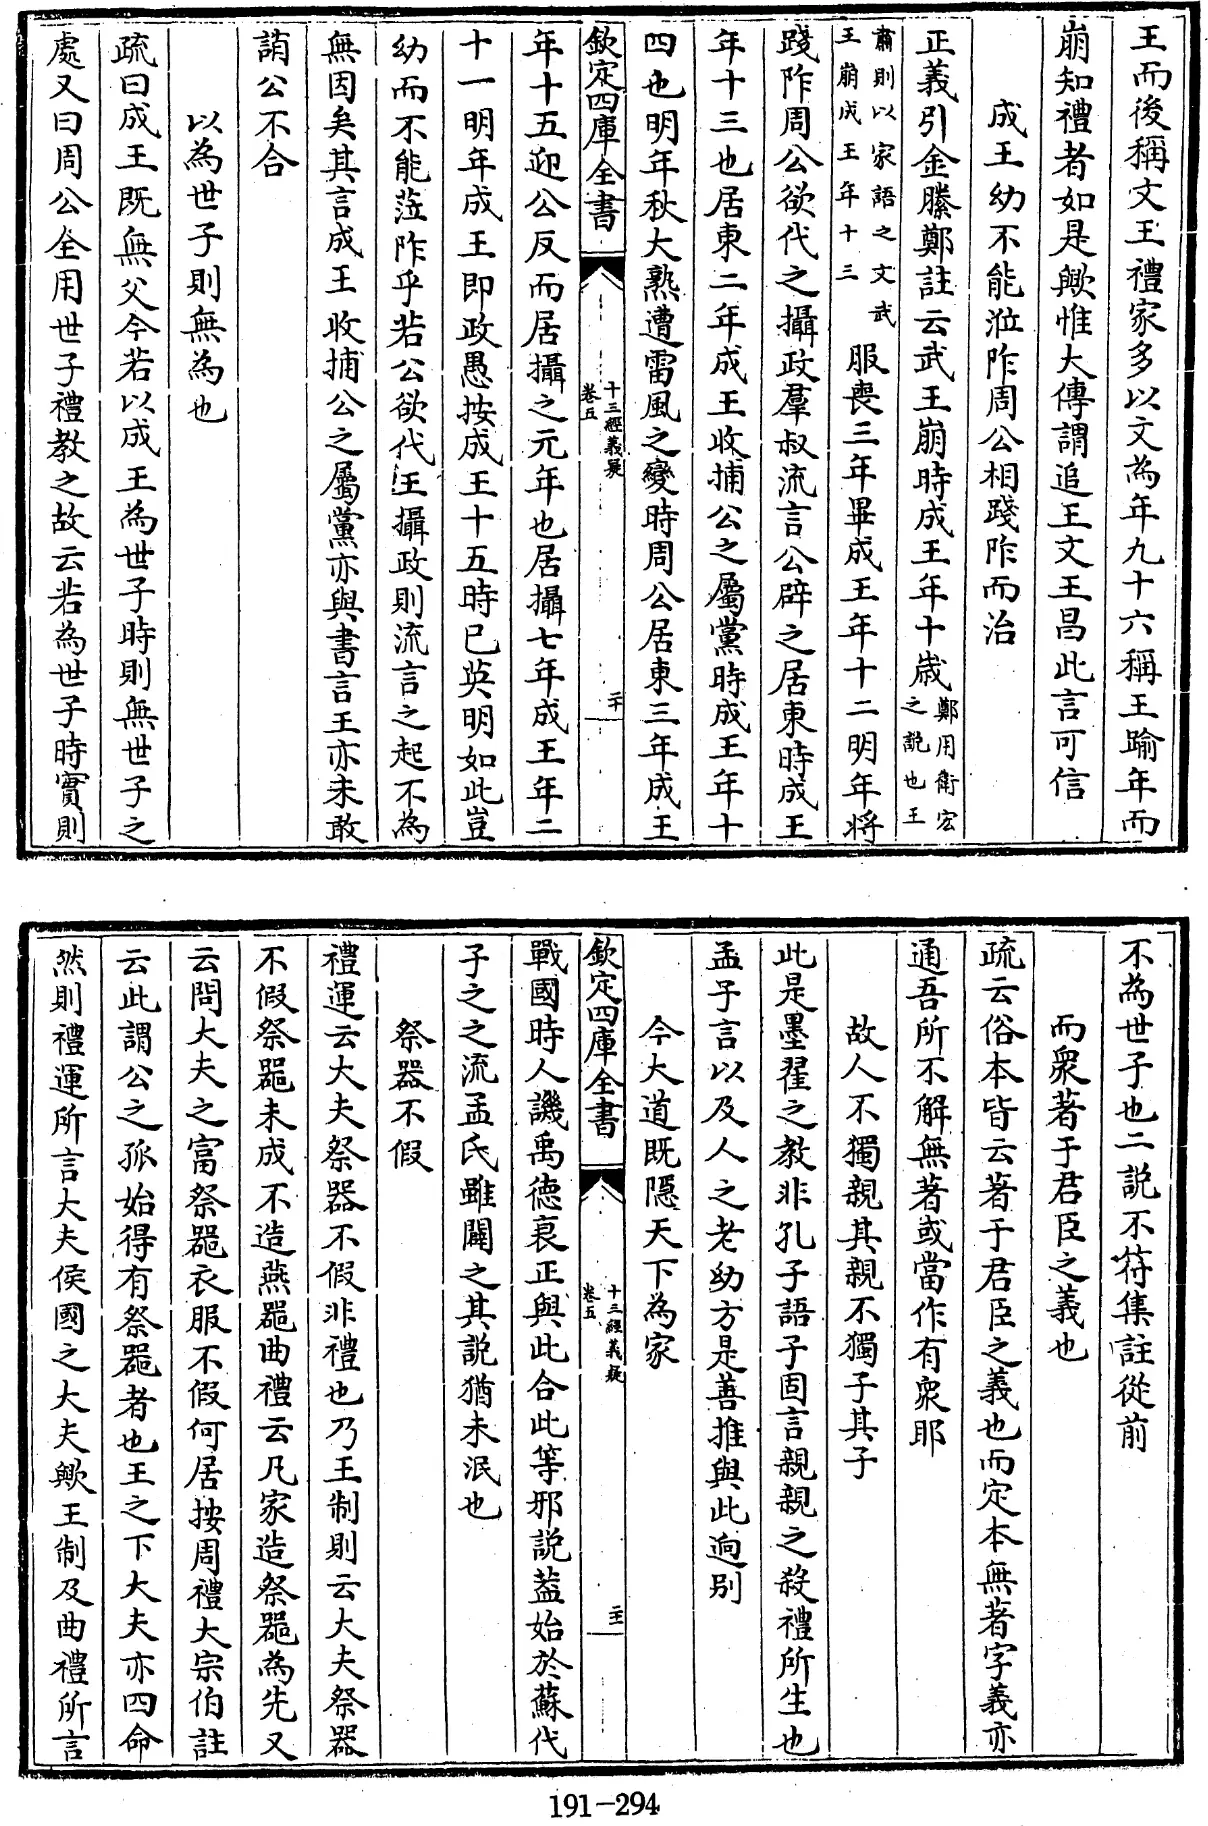 王而後稱文王禮家多以文為年九十六稱王踰年而
崩知禮者如是歟惟大傳謂追王文王昌此言可信
成王幼不能涖阼周公相踐阼而治
正義引金縢鄭註云武王崩時成王年十歲鄭用衛宏
之說也王
肅則以家語之文武
王崩成王年十三
服喪三年畢成王年十二明年將
踐阼周公欲代之攝政羣叔流言公辟之居東時成王
年十三也居東二年成王收捕公之屬黨時成王年十
四也明年秋大熟遭雷風之變時周公居東三年成王
欽定四庫全書
十三經義疑
卷五
二十
年十五迎公反而居攝之元年也居攝七年成王年二
十一明年成王即政愚按成王十五時已英明如此豈
幼而不能蒞阼乎若公欲代王攝政則流言之起不為
無因矣其言成王收捕公之屬黨亦與書言王亦未敢
誚公不合
以為世子則無為也
疏曰成王既無父今若以成王為世子時則無世子之
處又曰周公全用世子禮教之故云若為世子時實則
不為世子也二說不符集註從前
而衆著于君臣之義也
疏云俗本皆云著于君臣之義也而定本無著字義亦
通吾所不解無著或當作有衆耶
故人不獨親其親不獨子其子
此是墨翟之教非孔子語子固言親親之殺禮所生也
孟子言以及人之老幼方是善推與此逈别
今大道既隱天下為家
欽定四庫全書
十三經義疑
卷五
二十一
戰國時人譏禹德衰正與此合此等邪說葢始於蘇代
子之之流孟氏雖闢之其說猶未泯也
祭器不假
禮運云大夫祭器不假非禮也乃王制則云大夫祭器
不假祭器未成不造燕器曲禮云凡家造祭器為先又
云問大夫之富祭器衣服不假何居按周禮大宗伯註
云此謂公之孤始得有祭器者也王之下大夫亦四命
然則禮運所言大夫侯國之大夫歟王制及曲禮所言
191-294